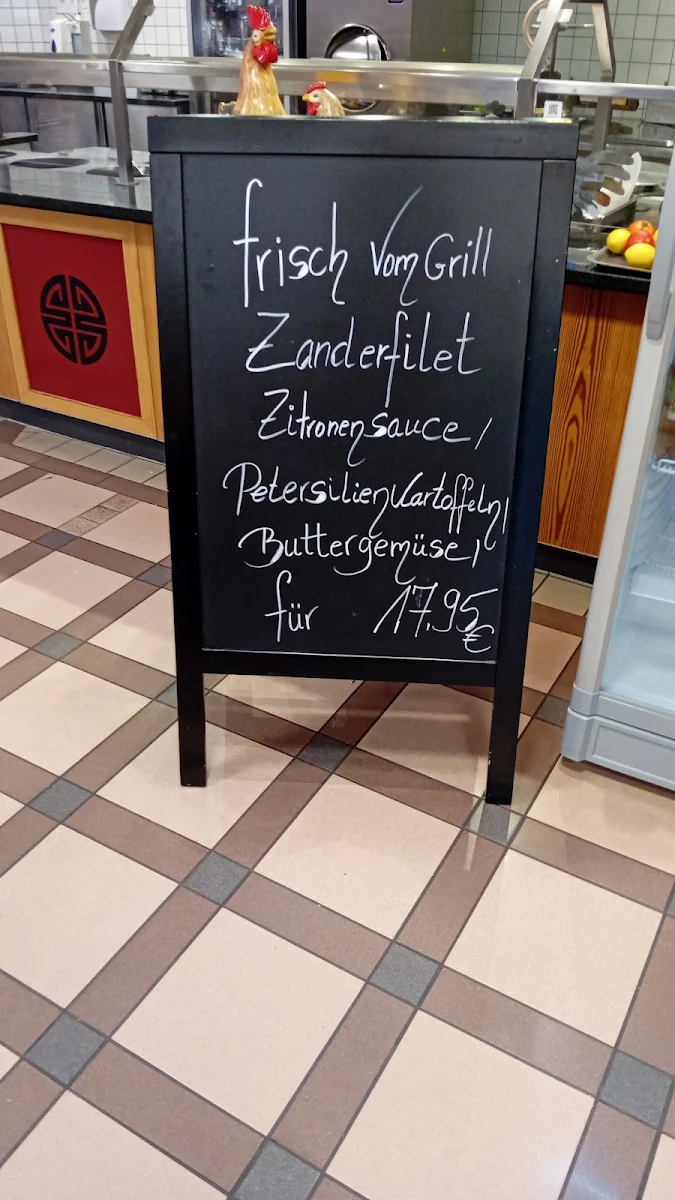 frisch vom Grill
Zanderfilet
Zitronensauce,
Petersilienkartoffeln,
Buttergemüse,
für 17,95 €